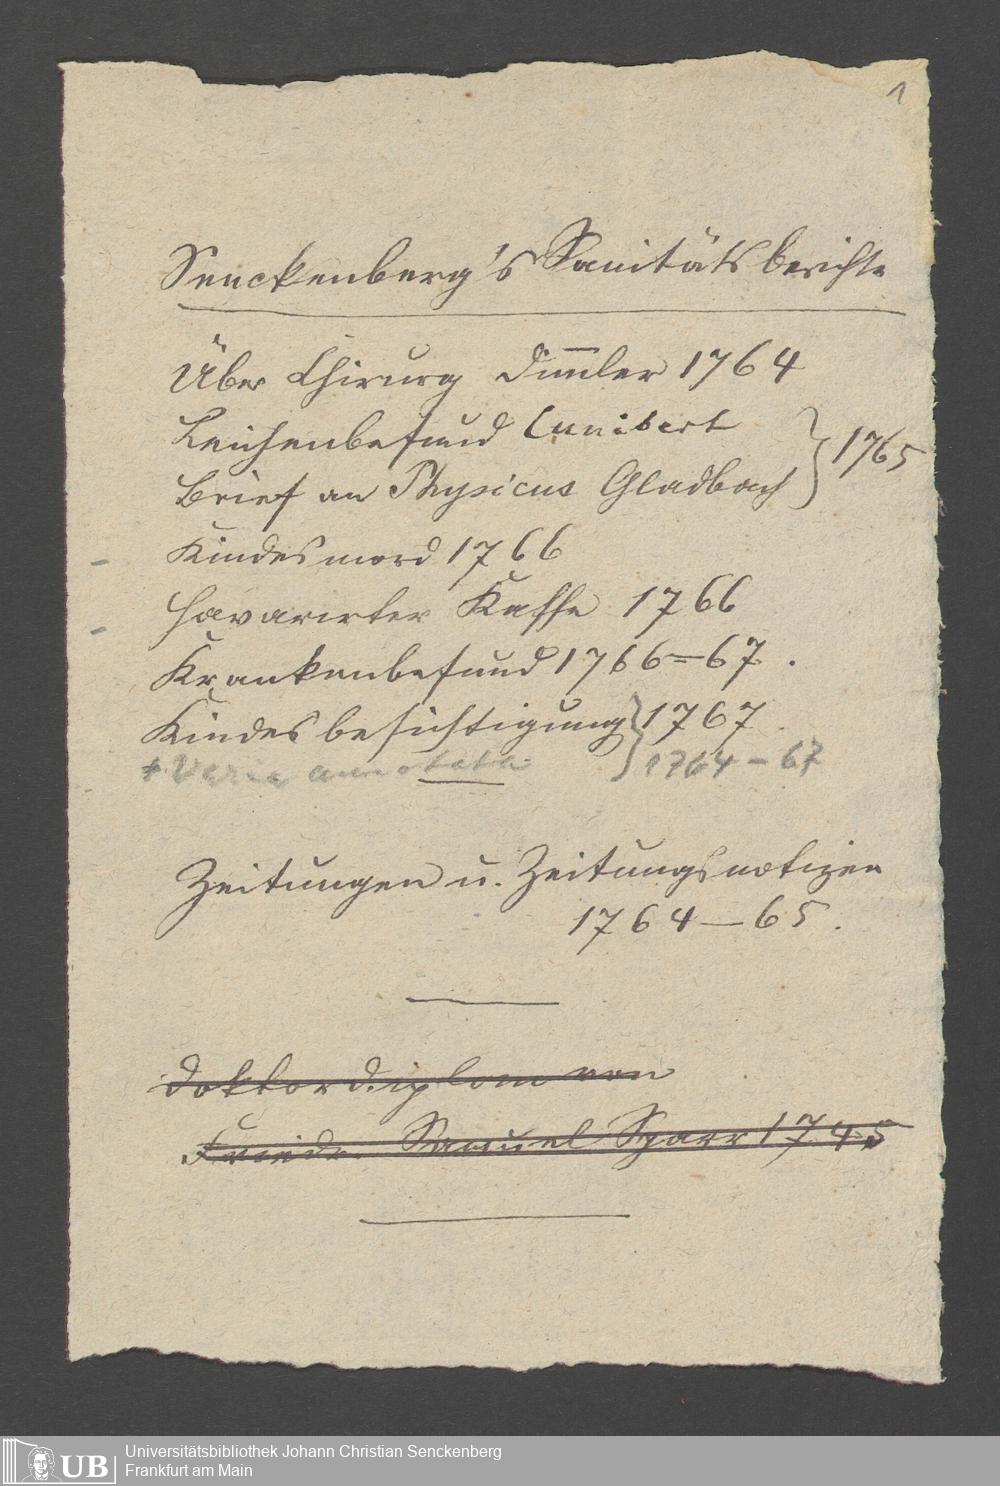 1
Senckenberg's Sanitätsberichte
Über Chirurg Dim̅ler 1764
Leichenbefund Cunibert
Brief an Physicus Gladbach } 1765
- Kindesmord 1766
- Havarirter Kaffe 1766
Krankenbefund 1766=67.
Kindesbesichtigung } 1767.
+ Varia annotata 1764-67
Zeitungen u. Zeitungsnotizen
1764-65.
Doktordiplom von
Friedr. Samuel Sparr 1745
UB Universitätsbibliothek Johann Christian Senckenberg
Frankfurt am Main